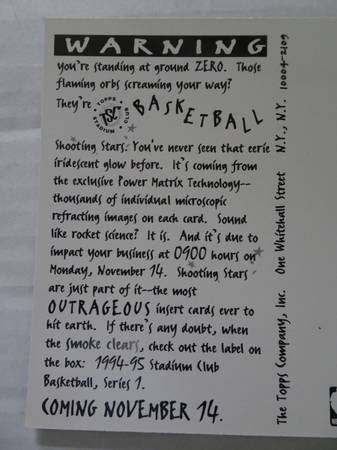 WARNING
you're standing at ground ZERO. Those
flaming orbs screaming your way?
They're TOPPS STADIUM CLUB TSC BASKETBALL
Shooting Stars. You've never seen that eerie
iridescent glow before. It's coming from
the exclusive Power Matrix Technology--
thousands of individual microscopic
refracting images on each card. Sound
like rocket science? It is. And it's due to
impact your business at 0900 hours on
Monday, November 14. Shooting Stars
are just part of it--the most
OUTRAGEOUS insert cards ever to
hit earth. If there's any doubt, when
the smoke clears, check out the label on
the box: 1994-95 Stadium Club
Basketball, Series 1.
COMING NOVEMBER 14.
The Topps Company, Inc. One Whitehall Street N.Y., N.Y. 10004-2109